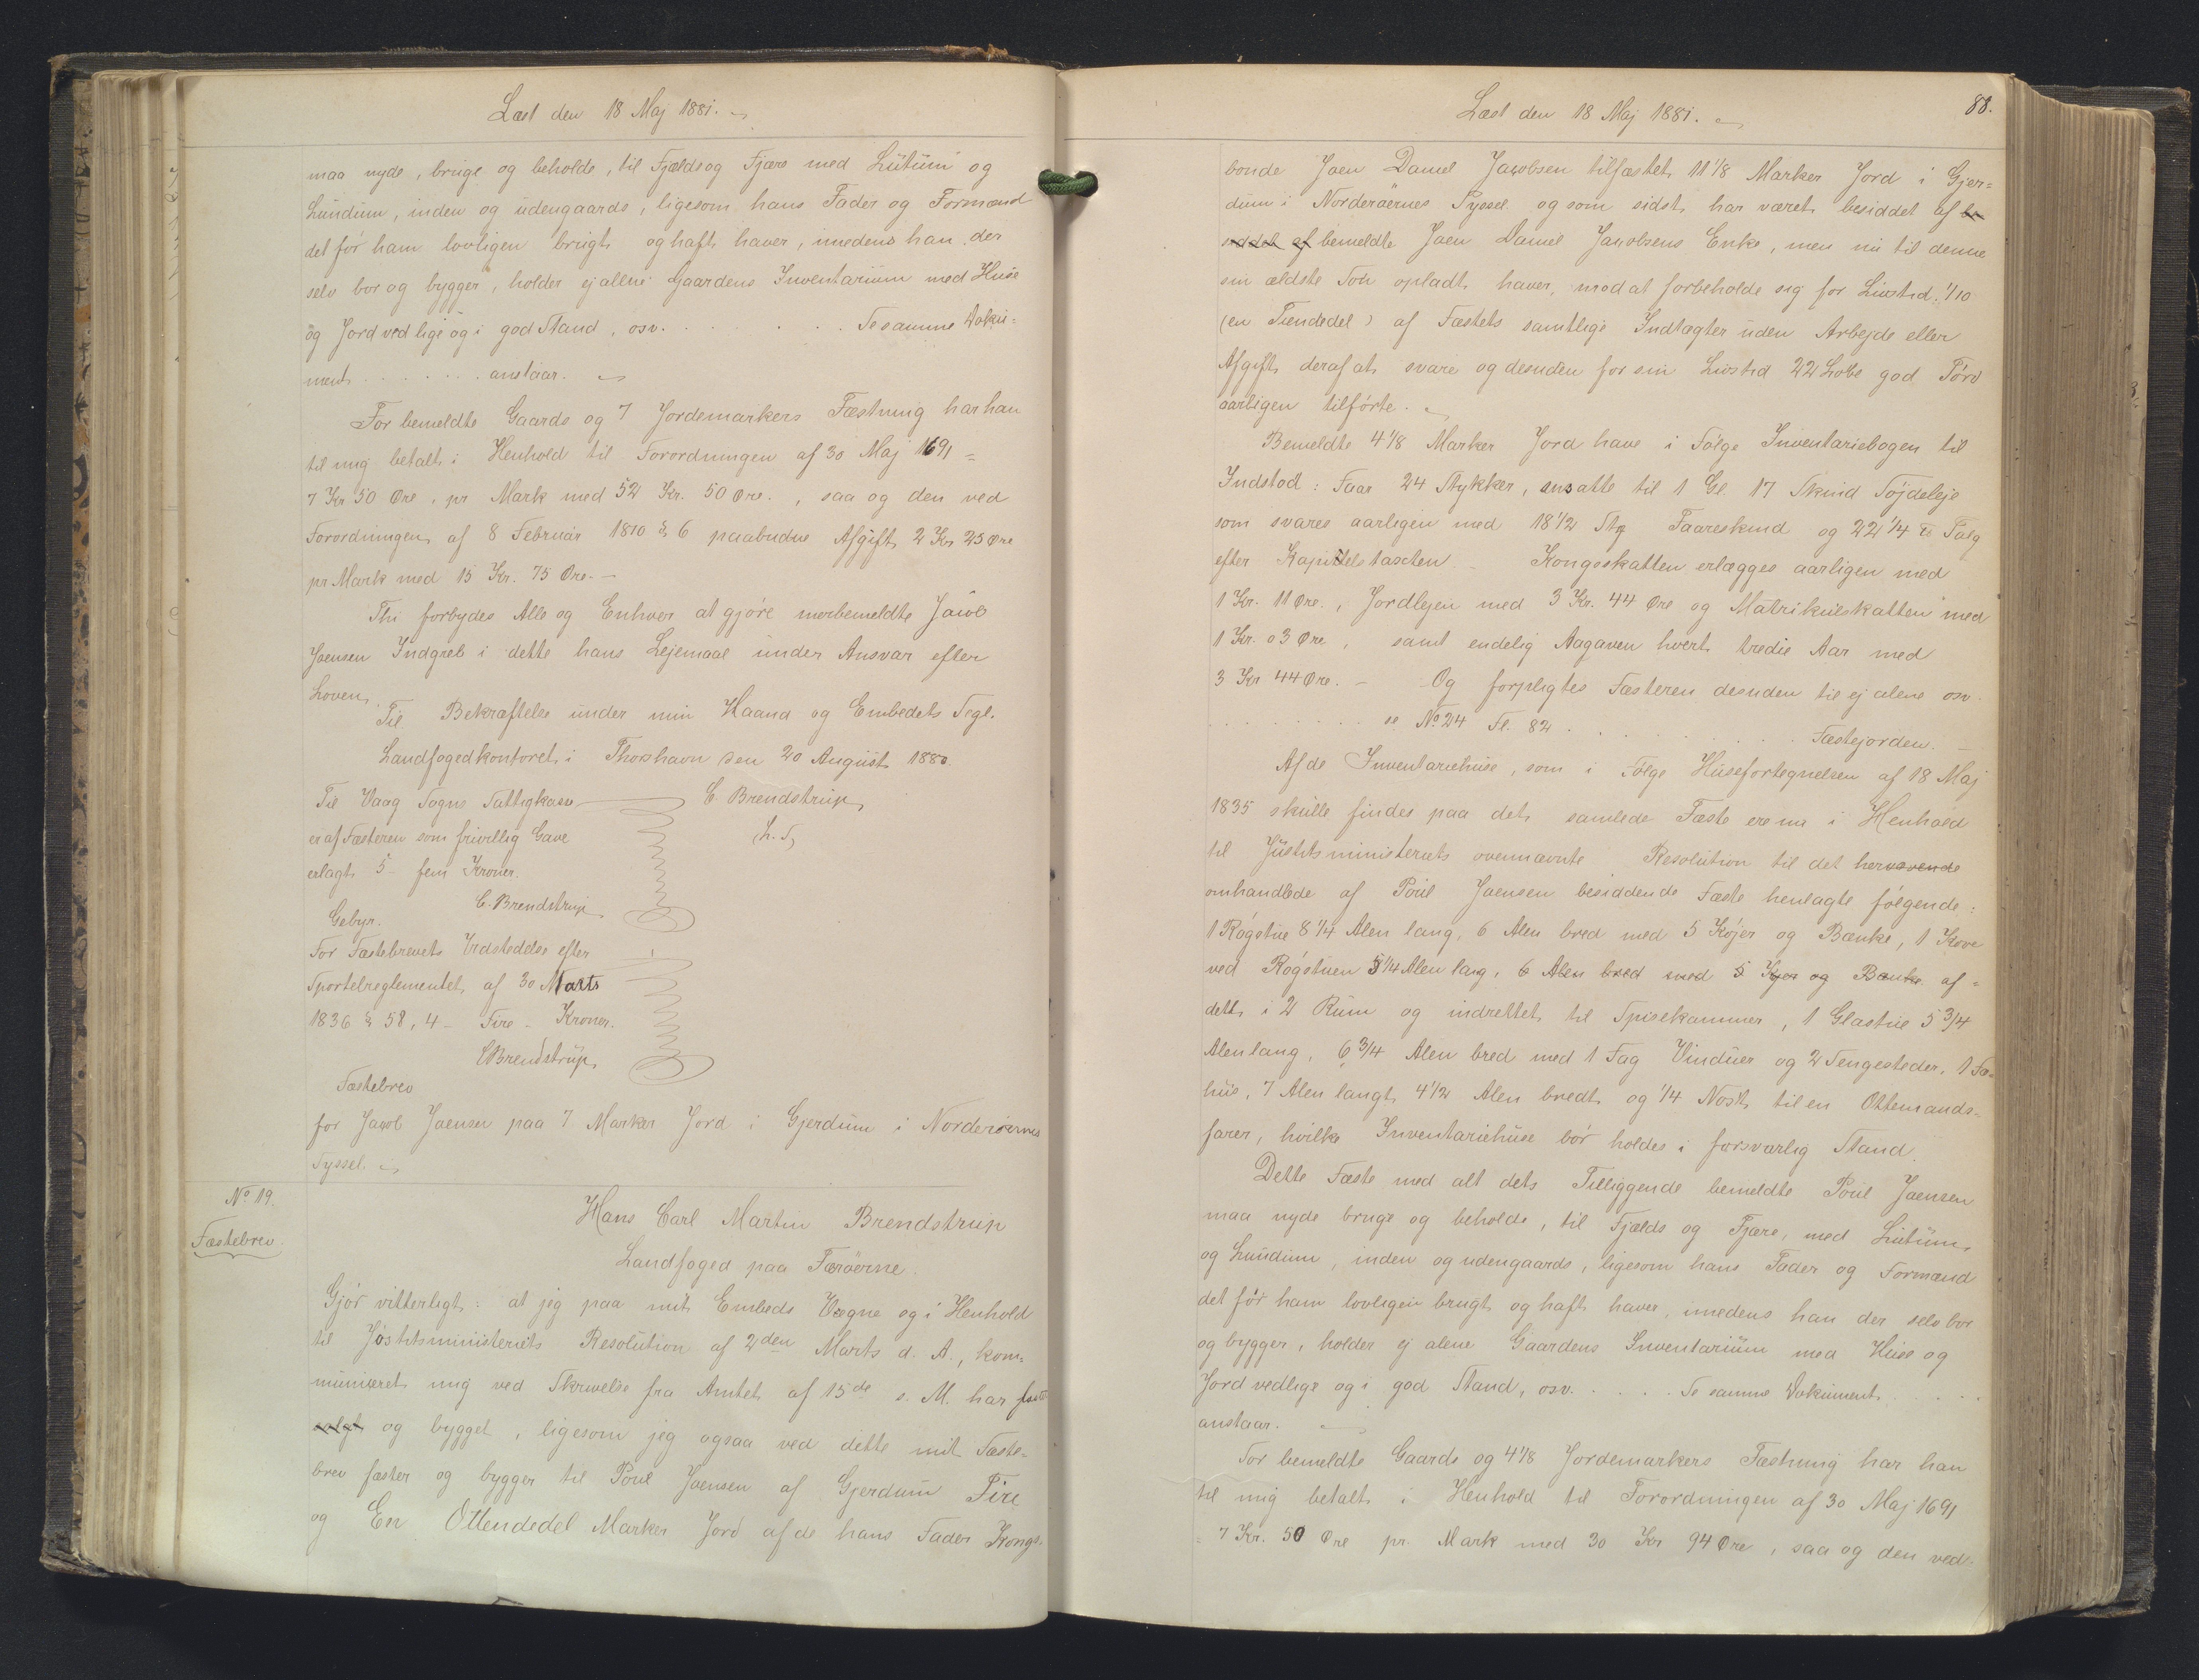 Læst den 18 Maj 1881.
maa nyde, bruge og beholde, til Fjælds og Fjære med Lutum og
Lundum, inden og udengaards, ligesom hans Fader og Formænd
det før ham lovligen brugt og haft haver, imedens han der
selv bor og bygger, holder ej allene Gaardens Inventarium med Huse
og Jord vedlige og i god Stand, osv. . . . . . . . Se samme Doku=
ment . . . . . . . anstaar.
For bemeldte Gaards og 7 Jordemarkers Fæstning har han
til mig betalt i Henhold til Forordningen af 30 Maj 1691 =
7 Kr 50 Øre, pr Mark med 52 Kr. 50 Øre., saa og den ved
Forordningen af 8 Februar 1810 § 6 paabudne Afgift 2 Kr 25 Øre
pr Mark med 15 Kr. 75 Øre. —
Thi forbydes Alle og Enhver at gjøre merbemeldte Jacob
Joensen Indgreb i dette hans Lejemaal under Ansvar efter
Loven.
Til Bekræftelse under min Haand og Embedets Segl.
Landfogedkontoret i Thorshavn den 20 August 1880.
Til Vaag Sogns Fattigkasse
C. Brendstrup
er af Fæsteren som frivillig Gave
L. S.
erlagt 5 - fem Kroner.
C. Brendstrup
Gebyr.
For Fæstebrevets Udstedelse efter
Sportelreglementet af 30 Marts
1836 § 58, 4 - Fire - Kroner.
C Brendstrup
Fæstebrev
for Jacob Joensen paa 7 Marker Jord i Gjerdum i Norderøernes
Syssel.
No 19.
Fæstebrev.
Hans Carl Martin Brendstrup
Landfoged paa Færøerne.
Gjør vitterligt: at jeg paa mit Embeds Vegne og i Henhold
til Justitsministeriets Resolution af 2den Marts d. A., kom=
municeret mig ved Skrivelse fra Amtet af 15de s. M. har fæstet
solgt og bygget, ligesom jeg ogsaa ved dette mit Fæste=
brev fæster og bygger til Poul Joensen af Gjerdum Fire
og En Ottendedel Marker Jord af de hans Fader Kongs=
Læst den 18 Maj 1881.
88.
bonde Joen Daniel Jacobsen tilfæstet 11 1/8 Marker Jord i Gjer=
dum i Norderøernes Syssel og som sidst har været besiddet af be
siddet af bemeldte Joen Daniel Jacobsens Enke, men nu til denne
sin ældste Søn opladt haver, mod at forbeholde sig for Livstid 1/10
(en Tiendedel) af Fæstets samtlige Indtægter uden Arbejde eller
Afgift deraf at svare og desuden for sin Livstid 22 Løbe god Tørv
aarligen tilførte.
Bemeldte 4 1/8 Marker Jord have i Følge Inventariebogen til
Indstød: Faar 24 Stykker, ansatte til 1 Gl. 17 Skind Søjdeleje
som svares aarligen med 18 1/2 Stk Faareskind og 22 1/4 ℔ Talg
efter Kapitelstaxten. — Kongsskatten erlægges aarligen med
1 Kr. 11 Øre., Jordlejen med 3 Kr. 44 Øre og Matrikulskatten med
1 Kr. 03 Øre, samt endelig Aagaven hvert tredie Aar med
3 Kr 44 Øre. — Og forpligtes Fæsteren desuden til ej alene osv.
. . . . . . . . se No 24 Fl. 82 . . . . . . . . . . Fæstejorden. —
Af de Inventariehuse, som i Følge Husefortegnelsen af 18 Maj
1835 skulle findes paa det samlede Fæste ere nu i Henhold
til Justitsministeriets ovennævnte Resolution til det herværende
omhandlede af Poul Joensen besiddende Fæste henlagte følgende:
1 Røgstue 8 1/4 Alen lang, 6 Alen bred med 5 Køjer og Bænke, 1 Kove
ved Røgstuen 5 1/4 Alen lang, 6 Alen bred med 5 Kjer og Bænke af=
delt i 2 Rum og indrettet til Spisekammer, 1 Glastue 5 3/4
Alen lang, 6 3/4 Alen bred med 1 Fag Vinduer og 2 Sengesteder, 1 Fæ=
hus, 7 Alen langt 4 1/2 Alen bredt og 1/4 Nøst til en Ottemands=
farer, hvilke Inventariehuse bør holdes i forsvarlig Stand.
Dette Fæste med alt dets Tilliggende bemeldte Poul Joensen
maa nyde bruge og beholde, til Fjælds og Fjære, med Lutum
og Lundum, inden og udengaards, ligesom hans Fader og Formænd
det før ham lovligen brugt og haft haver, imedens han der selv bor
og bygger, holder ej alene Gaardens Inventarium med Huse og
Jord vedlige og i god Stand, osv. . . . . . Se samme Dokument . . . . .
anstaar.
For bemeldte Gaards og 4 1/8 Jordemarkers Fæstning har han
til mig betalt i Henhold til Forordningen af 30 Maj 1691
= 7 Kr. 50 Øre pr. Mark med 30 Kr 94 Øre, saa og den ved